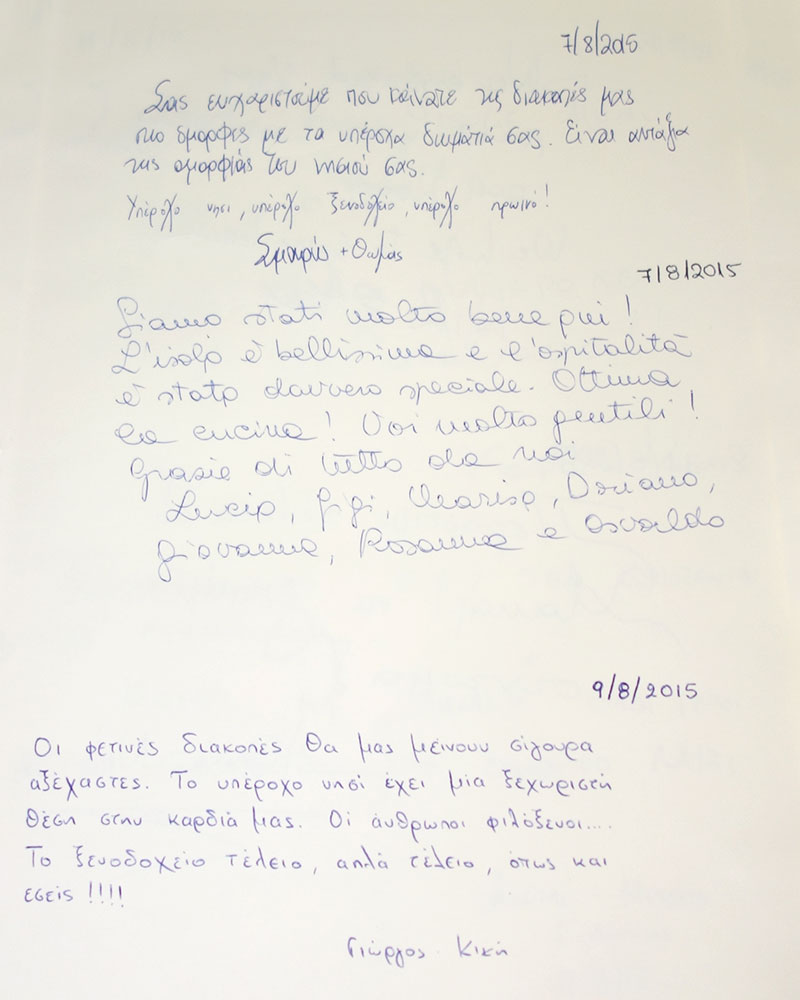 7/8/2015
Σας ευχαριστούμε που κάνατε τις διακοπές μας
πιο όμορφες με τα υπέροχα δωμάτιά σας. Είναι αντάξια
της ομορφιάς του νησιού σας.
Υπέροχο νησι, υπέροχο ξενοδοχείο, υπέροχο πρωινό!
Σμαρώ + Θωμάς
7/8/2015
Siamo stati molto bene qui!
L'isola è bellissima e l'ospitalità
è stata davvero speciale. Ottima
la cucina! Voi molto gentili!
Grazie di tutto da noi
Lucia, Gigi, Marisa, Doriano,
Giovanna, Rosanna e Osvaldo
9/8/2015
Οι φετινές διακοπές θα μας μείνουν σίγουρα
αξέχαστες. Το υπέροχο νησί έχει μία ξεχωριστή
θέση στην καρδιά μας. Οί άνθρωποι φιλόξενοι....
Το ξενοδοχείο τέλειο, απλά τέλειο, όπως και
εσείς!!!!
Γιώργος Κική